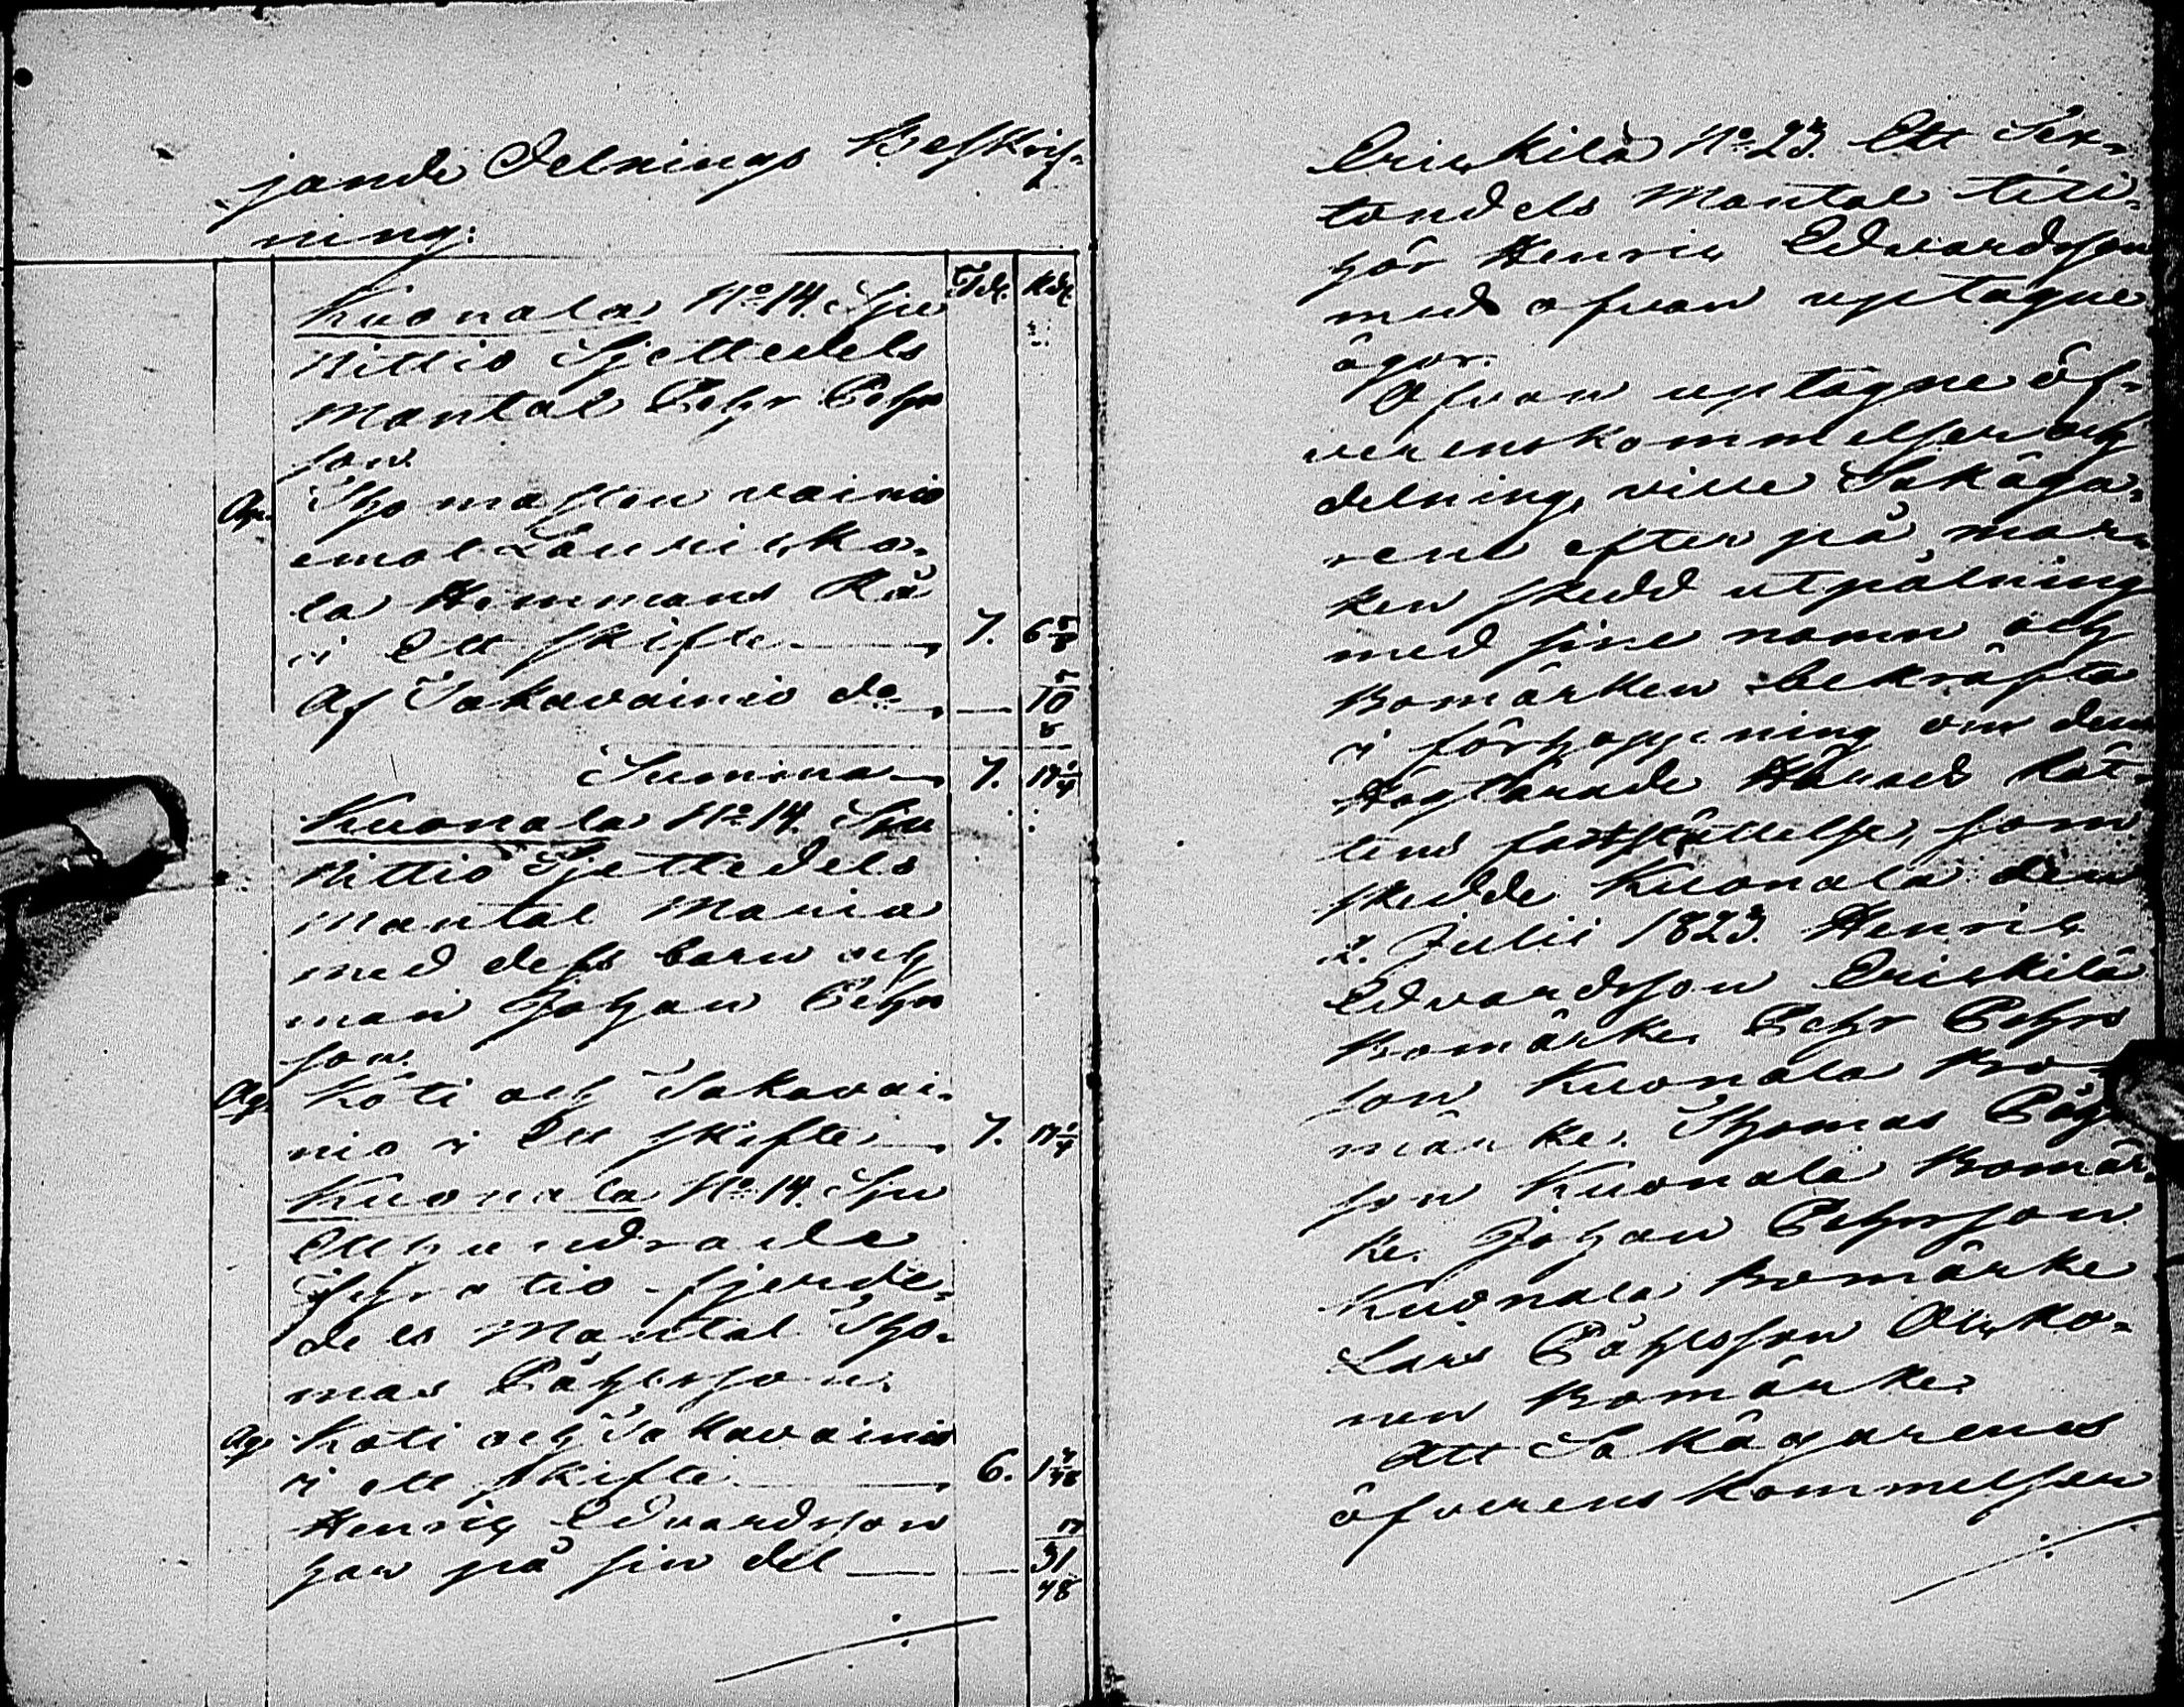 jande Delnings Beskrif-
ning:
Tdr. Kdr.
Kuonala No 14. Sju
Nittio Sjettedels
Mantal Pehr Pehrs
son.
Af Thomasson vainio
emot Laurickka-
la Hemmans Rå
i Ett skifte — 7. 6 5/8
Af Jakavainio do — — 10 5/8
Summa — 7. 17 1/4
Kuonala No 14. Sju
Nittio Sjettedels
Mantal Maria
med dess barn och
man Johan Pehrs
son.
Af Koti och Jakavai-
nio i Ett skifte — 7. 17 1/4
Kuonala No 14. Sju
Etthundrade
Fyratio fjerde-
dels Mantal Tho-
mas Påhlsson.
Af Koti och Jakavainio
i ett skifte — 6. 1
Henric Edvardsson
har på sin del — — 31/48
Erickilä No 23. Ett Sex-
tondels Mantal till-
hör Henric Edvardsson
med ofvan uptagne
ägor.
Ofvan uptagne öf-
verenskommelser och
delning, ville Sakäga-
rene efter på mar-
ken skedd utpålning
med sine namn och
Bomärken bekräfta
i förhoppning om den
Högtärade Härads Rät-
tens fastställelse, som
skedde Kuonala den
2. Julii 1823. Henric
Edvardsson Erickilä
Bomärke. Pehr Pehrs
son Kuonala Bo-
märke. Thomas Påhls
son Kuonala Bomär-
ke. Johan Pehrsson
Kuonala Bomärke
Lars Påhlsson
nen Bomärke.
Att Sakägarenes
öfverenskommelser